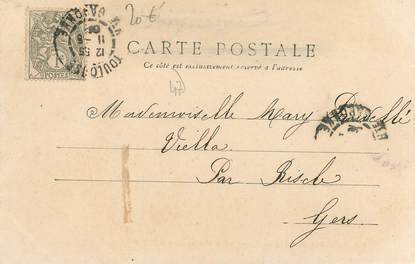 20 €
CARTE POSTALE
Ce côté est exclusivement réservé à l'adresse
POSTES
Mademoiselle Mary
Viella
Par Riscle
Gers